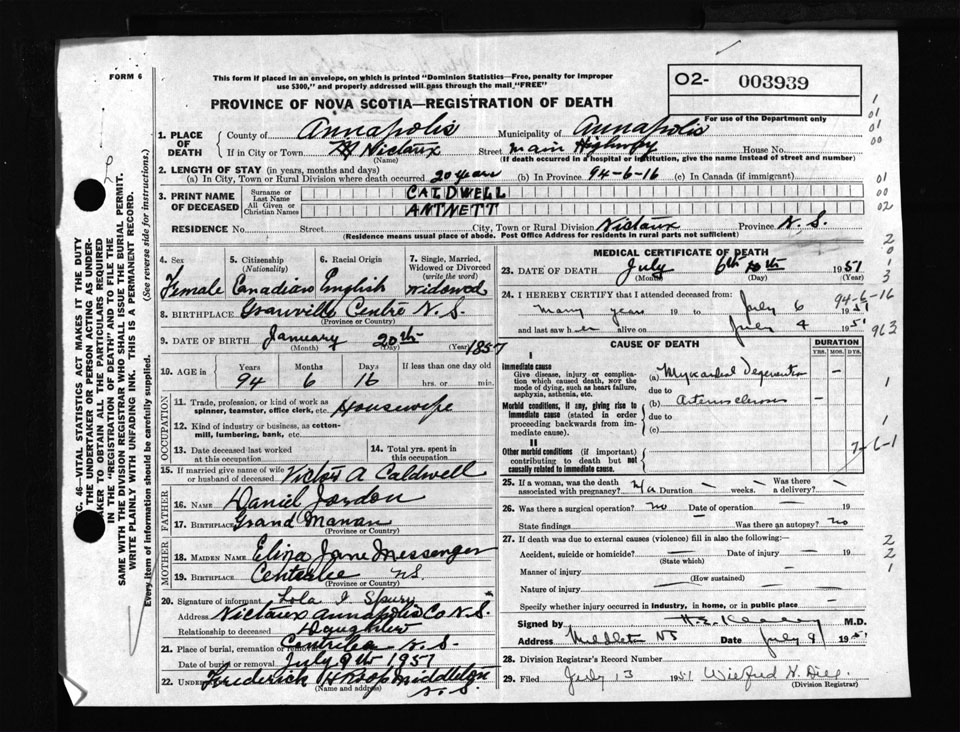 FORM 6
This form if placed in an envelope, on which is printed "Dominion Statistics—Free, penalty for improper
use $300," and properly addressed will pass through the mail "FREE"
O2- 003939
For use of the Department only
PROVINCE OF NOVA SCOTIA—REGISTRATION OF DEATH
SEC. 46—VITAL STATISTICS ACT MAKES IT THE DUTY
OF THE UNDERTAKER OR PERSON ACTING AS UNDER-
TAKER TO OBTAIN ALL THE PARTICULARS REQUIRED
IN THE "REGISTRATION OF DEATH" AND TO FILE THE
SAME WITH THE DIVISION REGISTRAR WHO SHALL ISSUE THE BURIAL PERMIT.
WRITE PLAINLY WITH UNFADING INK. THIS IS A PERMANENT RECORD.
Every item of information should be carefully supplied. (See reverse side for instructions.)
1. PLACE OF DEATH County of Annapolis Municipality of Annapolis
If in City or Town Nictaux Street Main Highway House No.
(Name) (If death occurred in a hospital or institution, give the name instead of street and number)
2. LENGTH OF STAY (in years, months and days)
(a) In City, Town or Rural Division where death occurred 20 years (b) In Province 94-6-16 (c) In Canada (if immigrant)
3. PRINT NAME OF DECEASED Surname or Last Name CALDWELL
All Given or Christian Names ANTNETT
RESIDENCE No. Street City, Town or Rural Division Nictaux Province N.S.
(Residence means usual place of abode. Post Office Address for residents in rural parts not sufficient)
4. Sex 5. Citizenship (Nationality) 6. Racial Origin 7. Single, Married, Widowed or Divorced (write the word)
Female Canadian English widowed
8. BIRTHPLACE Granville Centre N.S.
(Province or Country)
9. DATE OF BIRTH January 20th 1857
(Month) (Day) (Year)
10. AGE in Years Months Days If less than one day old
94 6 16 hrs. or min.
OCCUPATION
11. Trade, profession, or kind of work as spinner, teamster, office clerk, etc. Housewife
12. Kind of industry or business, as cotton-mill, lumbering, bank, etc.
13. Date deceased last worked at this occupation 14. Total yrs. spent in this occupation
15. If married give name of wife or husband of deceased Victor A Caldwell
FATHER
16. NAME Daniel Jordon
17. BIRTHPLACE Grand Manan
(Province or Country)
MOTHER
18. MAIDEN NAME Eliza Jane Messenger
19. BIRTHPLACE Centerlee NS.
(Province or Country)
20. Signature of informant Lola I Spury
Address Nictaux Annapolis Co N.S.
Relationship to deceased Daughter
21. Place of burial, cremation or removal Centrelea N.S.
Date of burial or removal July 9th 1951
22. Undertaker Frederick Middleton
(Name and address) N.S.
MEDICAL CERTIFICATE OF DEATH
23. DATE OF DEATH July 6th 1951
(Month) (Day) (Year)
24. I HEREBY CERTIFY that I attended deceased from:
many years 19 to July 6 1951
and last saw her alive on July 4 1951
94-6-16
963
CAUSE OF DEATH DURATION
YRS. MOS. DYS.
I
Immediate cause
Give disease, injury or complication which caused death, NOT the mode of dying, such as heart failure, asphyxia, asthenia, etc.
(a) Myocardial Degeneration —
due to
Morbid conditions, if any, giving rise to immediate cause (stated in order proceeding backwards from immediate cause).
(b) Arteriosclerosis —
due to
(c)
II
Other morbid conditions (if important) contributing to death but not causally related to immediate cause.
7-6-1
25. If a woman, was the death associated with pregnancy? N/a Duration — weeks. Was there a delivery? —
26. Was there a surgical operation? no Date of operation — 19
State findings — Was there an autopsy? no
27. If death was due to external causes (violence) fill in also the following:
Accident, suicide or homicide? — Date of injury — 19
(State which)
Manner of injury —
(How sustained)
Nature of injury —
Specify whether injury occurred in industry, in home, or in public place —
Signed by M.D.
Address Middleton NS Date July 9 1951
28. Division Registrar's Record Number
29. Filed July 13 1951
(Division Registrar)